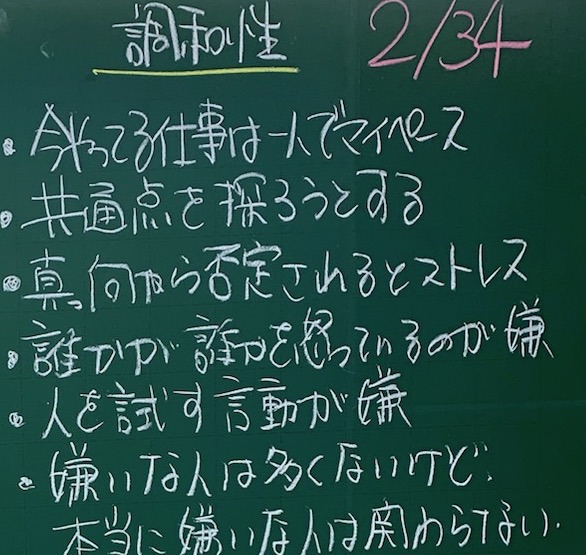 調和性 2/34
・今やってる仕事は一人でマイペース
・共通点を探ろうとする
・真っ向から否定されるとストレス
・誰かが誰かを怒っているのが嫌
・人を試す言動が嫌
・嫌いな人は多くないけど、
本当に嫌いな人は関わらない.